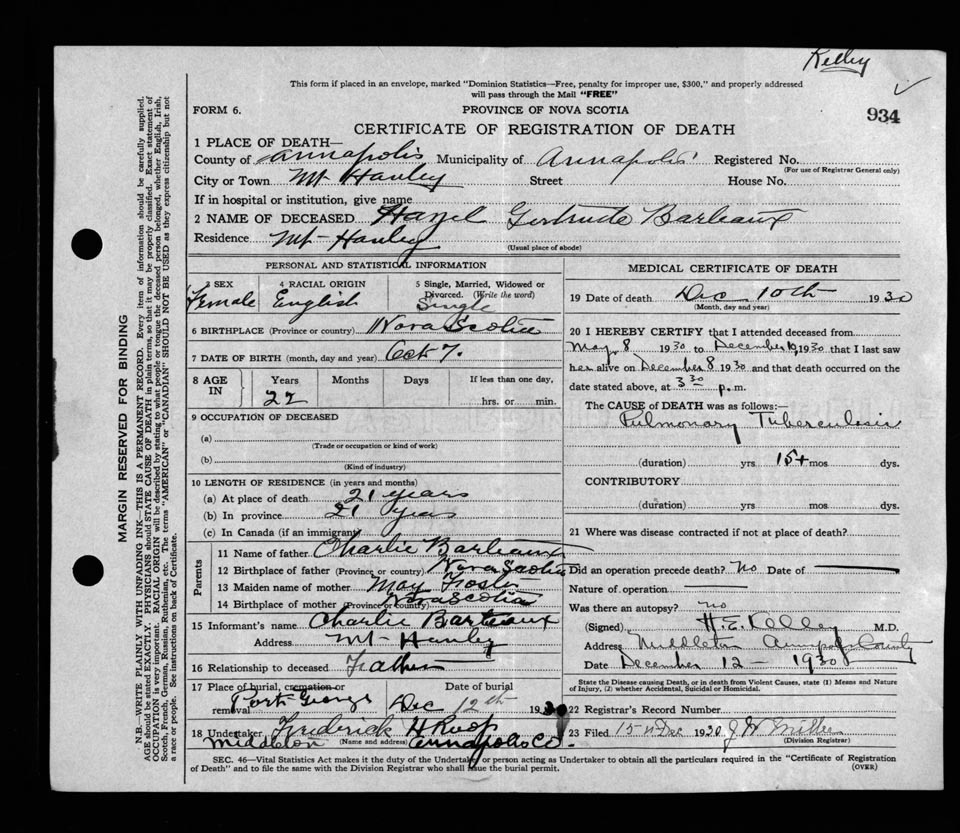 Kelley
This form if placed in an envelope, marked "Dominion Statistics—Free, penalty for improper use, $300," and properly addressed
will pass through the Mail "FREE"
FORM 6.
PROVINCE OF NOVA SCOTIA
934
CERTIFICATE OF REGISTRATION OF DEATH
1 PLACE OF DEATH—
County of Annapolis Municipality of Annapolis Registered No.
(For use of Registrar General only)
City or Town Mt Hanley Street House No.
If in hospital or institution, give name
2 NAME OF DECEASED Hazel Gertrude Barteaux
Residence Mt-Hanley
(Usual place of abode)
PERSONAL AND STATISTICAL INFORMATION
3 SEX Female
4 RACIAL ORIGIN English
5 Single, Married, Widowed or Divorced. (Write the word) Single
6 BIRTHPLACE (Province or country) Nova Scotia
7 DATE OF BIRTH (month, day and year) Oct 7.
8 AGE IN Years Months Days If less than one day,
22 hrs. or min.
9 OCCUPATION OF DECEASED
(a)
(Trade or occupation or kind of work)
(b)
(Kind of industry)
10 LENGTH OF RESIDENCE (in years and months)
(a) At place of death 21 years
(b) In province 21 years
(c) In Canada (if an immigrant)
Parents
11 Name of father Charlie Barteaux
12 Birthplace of father (Province or country) Nova Scotia
13 Maiden name of mother May Foster
14 Birthplace of mother (Province or country) Nova Scotia
15 Informant's name Charlie Barteaux
Address Mt-Hanley
16 Relationship to deceased Father
17 Place of burial, cremation or removal Port George Date of burial Dec 12th 1930
18 Undertaker Frederick H Roop
Middleton (Name and address) Annapolis Co.
MEDICAL CERTIFICATE OF DEATH
19 Date of death Dec 10th 1930
(Month, day and year)
20 I HEREBY CERTIFY that I attended deceased from
May 8 1930 to December 10, 1930 that I last saw
her alive on December 8 1930 and that death occurred on the
date stated above, at 3 30 p.m.
The CAUSE of DEATH was as follows:—
Pulmonary Tuberculosis
(duration) yrs 15+ mos dys.
CONTRIBUTORY
(duration) yrs mos dys.
21 Where was disease contracted if not at place of death?
Did an operation precede death? No Date of
Nature of operation
Was there an autopsy? no
(Signed) H.E. Kelley M.D.
Address Middleton Annapolis County
Date December 12 — 1930
State the Disease causing Death, or in death from Violent Causes, state (1) Means and Nature of Injury, (2) whether Accidental, Suicidal or Homicidal.
22 Registrar's Record Number
23 Filed 15th Dec 1930
(Division Registrar)
SEC. 46—Vital Statistics Act makes it the duty of the Undertaker or person acting as Undertaker to obtain all the particulars required in the "Certificate of Registration
of Death" and to file the same with the Division Registrar who shall issue the burial permit.
(OVER)
MARGIN RESERVED FOR BINDING
N.B.—WRITE PLAINLY WITH UNFADING INK—THIS IS A PERMANENT RECORD. Every item of information should be carefully supplied.
AGE should be stated EXACTLY. PHYSICIANS should STATE CAUSE OF DEATH in plain terms, so that it may be properly classified. Exact statement of
OCCUPATION is very important. RACIAL ORIGIN will be described by stating to what people or tongue the deceased person belonged, whether English, Irish,
Scotch, French, German, Russian, Ruthenian, etc. The terms "AMERICAN" or "CANADIAN" SHOULD NOT BE USED as they express citizenship but not
a race or people. See instructions on back of Certificate.